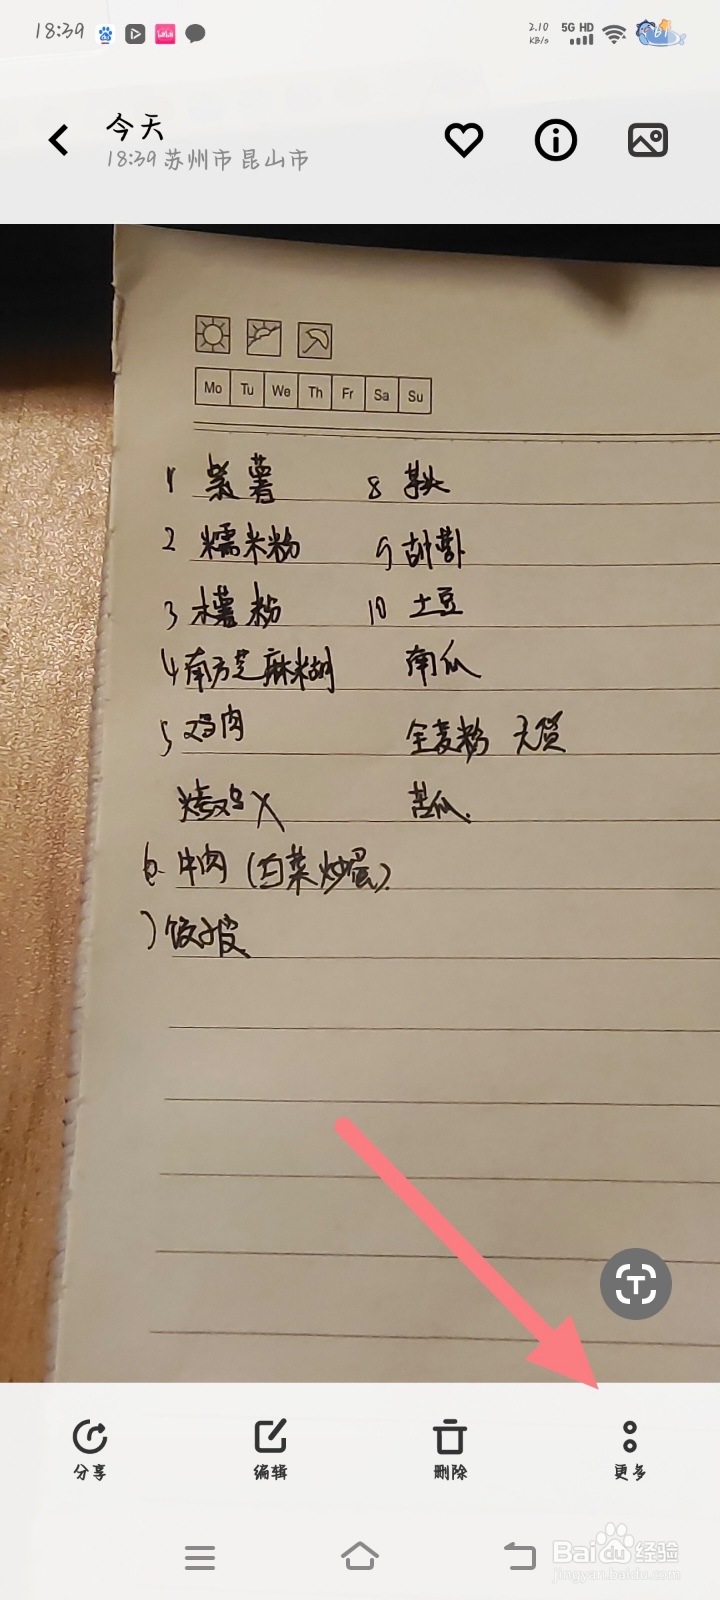 18:39
2.10 KB/s 5G HD 61
今天
18:39 苏州市 昆山市
Mo Tu We Th Fr Sa Su
1 紫薯 8
2 糯米粉 9
3 木薯粉 10 土豆
4 南方芝麻糊 南瓜
5 鸡肉 全麦粉 无货
烤鸡 X 苦瓜.
6. 牛肉 (白菜炒蛋)
7 饺子皮
分享 编辑 删除 更多
Baidu经验
jingyan.baidu.com